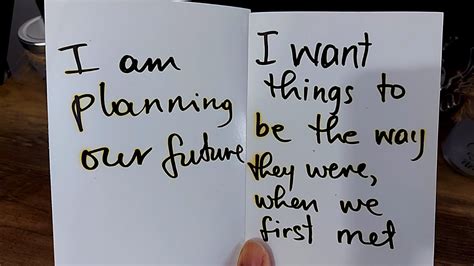 I am
planning
our future
I want
things to
be the way
they were,
when we
first met